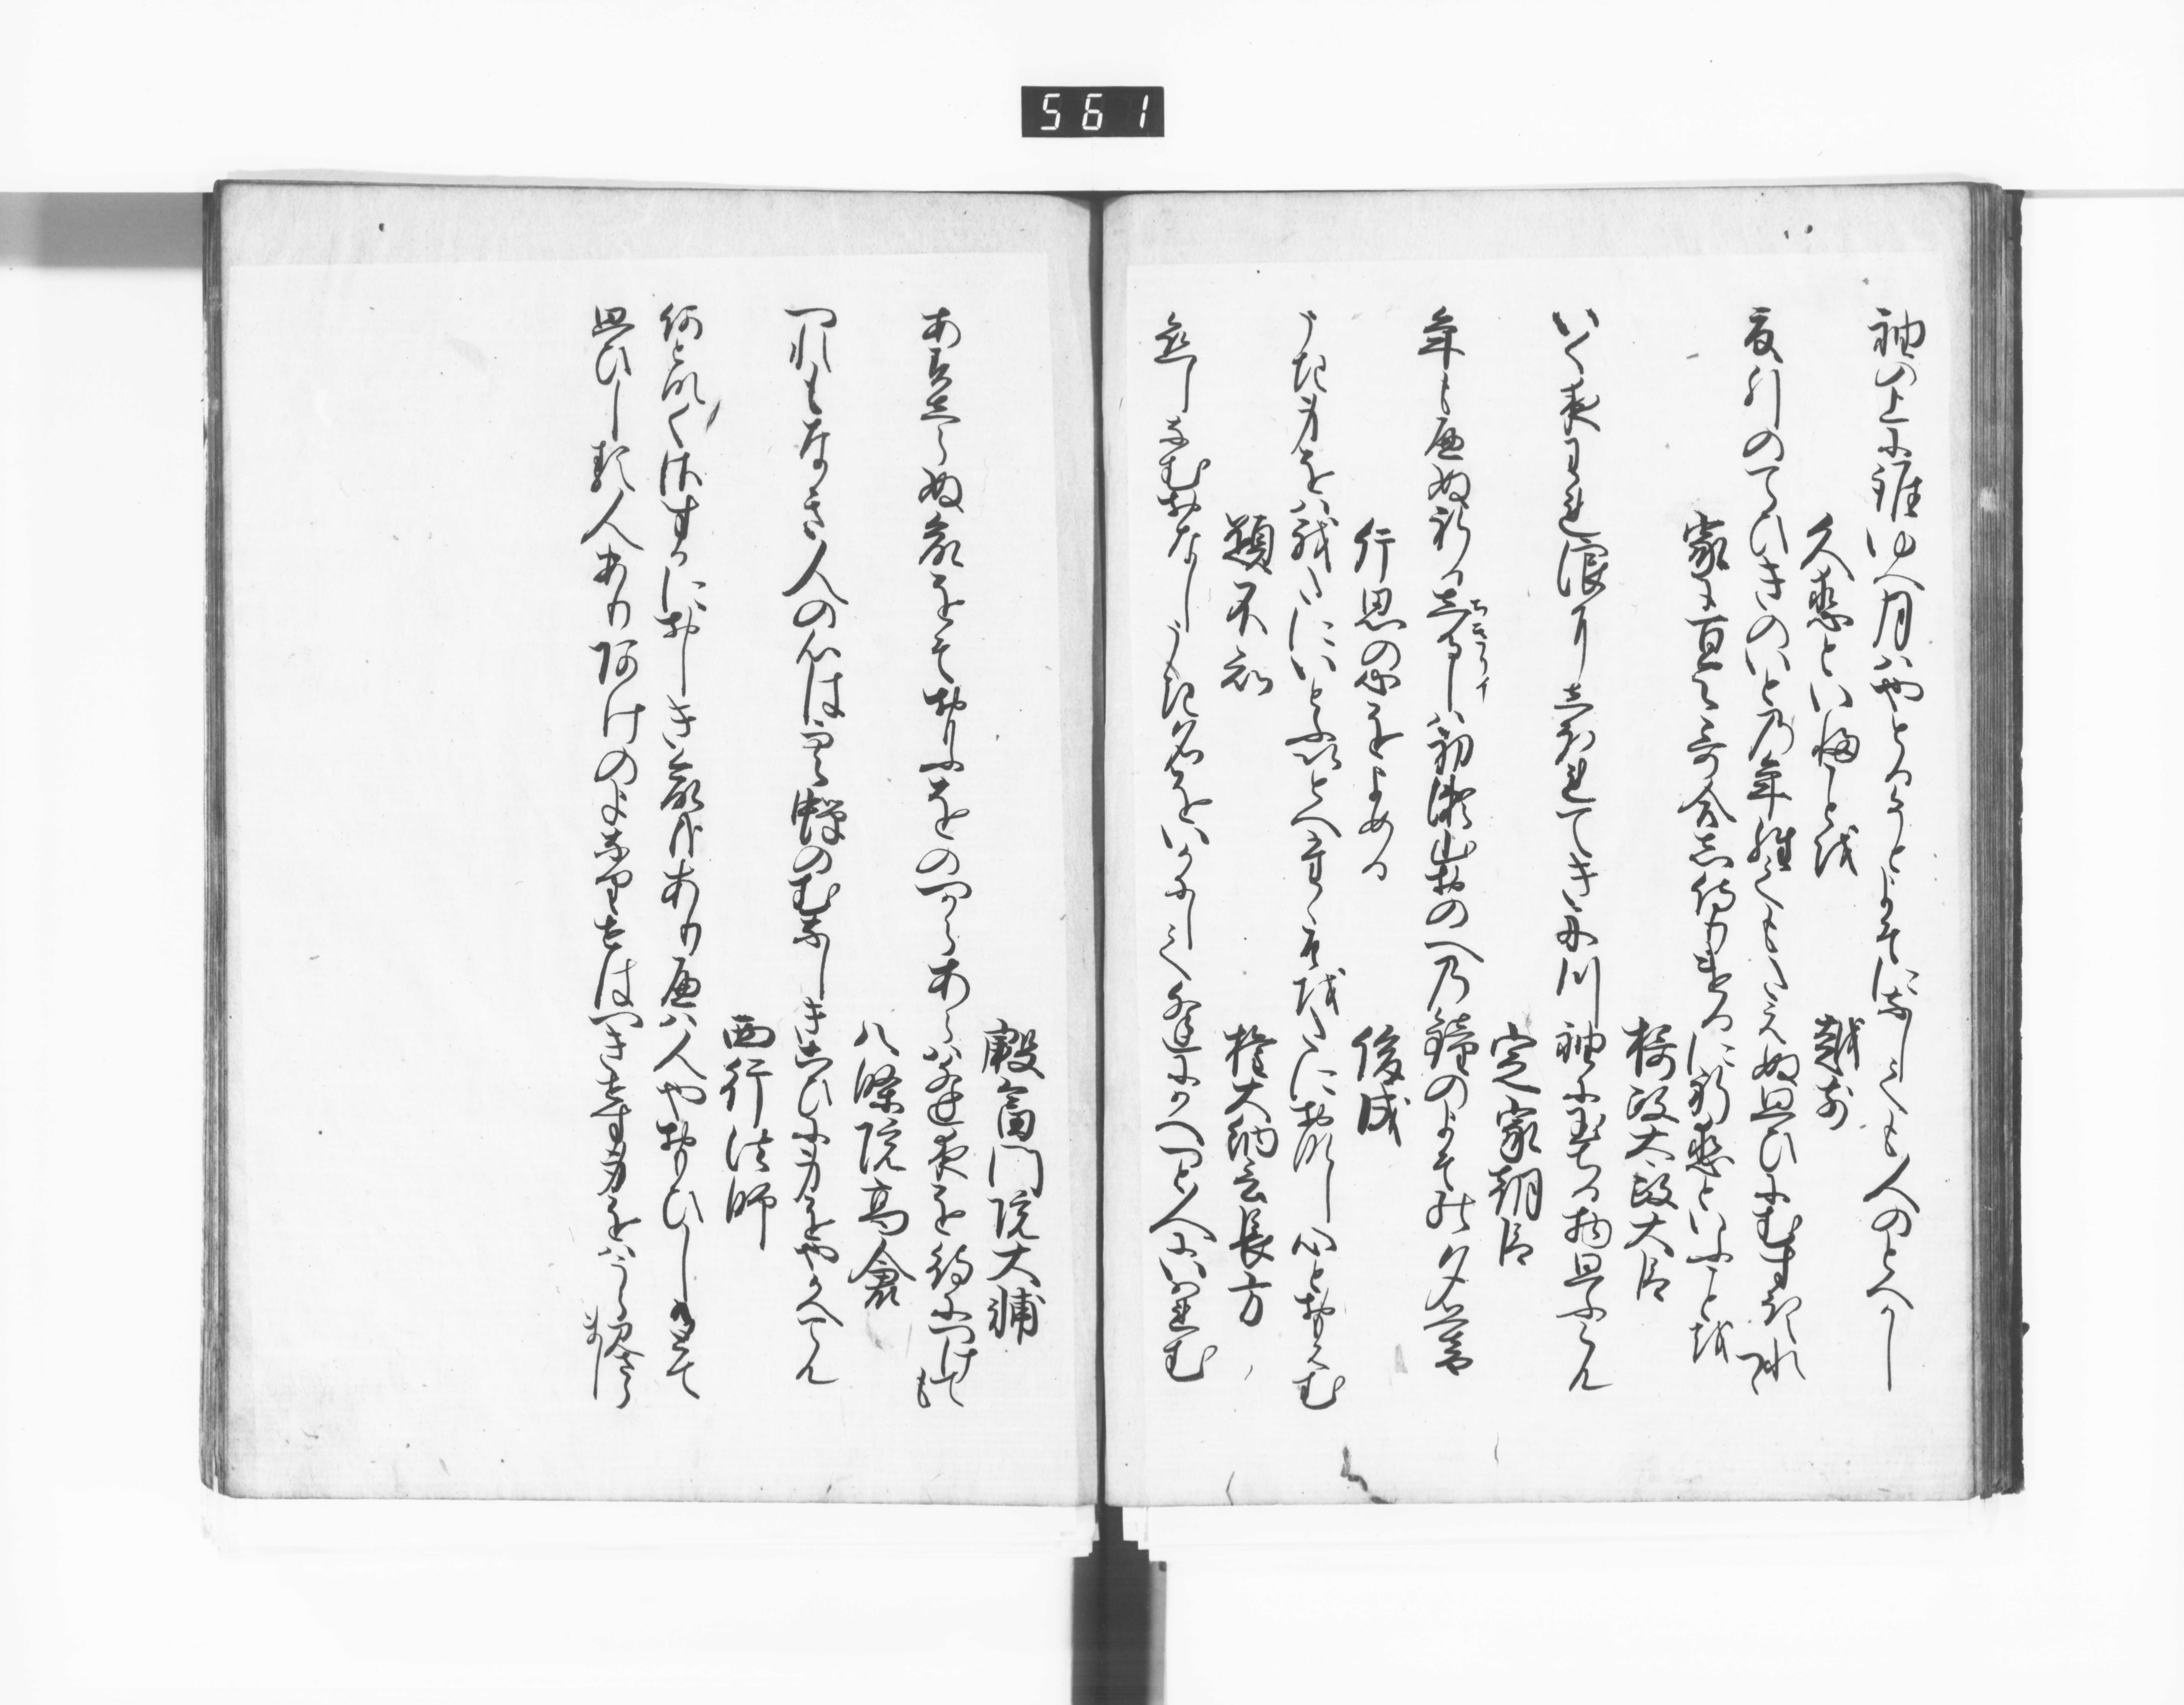 561
袖の上に誰ゆへ月はやとるそとよそになしても人のとへかし
久恋といへることを
越前
夏引のてひきのいとの年経てもたえぬ思ひにむすほゝれつゝ
家に百首哥合し侍りけるに祈恋といふことを
摂政太政大臣
いく夜われ浪にしほれてき舟川袖に玉ちる物思ふらん
定家朝臣
年も歴ぬ祈るしるしは初瀬山おのへの鐘のよそのタ暮
ちきりイ
片思の心をよめる
俊成
うき身をは我たにいとふいとへたゝそをたにおなし心とおもはむ
題不知
権大納言長方
恋しなむおなしうき名をいかにして逢にかへつと人にいはれむ
殷富門院大輔
あすしらぬ命をそおもふをのつからあらは逢夜を待につけても
八條院高倉
つれもなき人の心はうつ蝉のむなしきこひに身をやかへてん
西行法師
何となくさすかにおしき命かなありへは人やおもひしるとて
思ひしる人ありあけのよなりせはつきせす身をはうらみさらまし